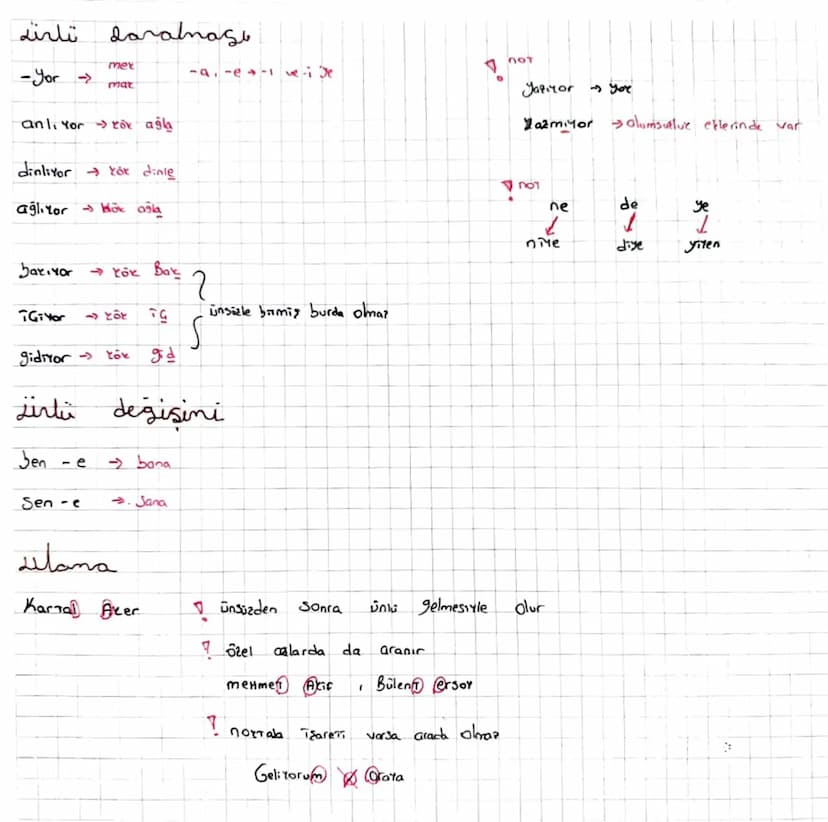 ünlü daralması
-yor → mek mak -a, -e → -ı ve -i ye
anlıyor → kök ağla
dinliyor → kök dinle
ağlıyor → kök ağla
bakıyor → kök Bak
içiyor → kök iç
gidiyor → kök gid
ünsüzle bitmiş burda olmaz
! not
yazıyor → yok
Yazmıyor → olumsuzluk eklerinde var
! not
ne de ye
niye diye yiyen
ünlü değişimi
ben -e → bana
Sen -e → Sana
ulama
Kartal Aker
! ünsüzden sonra ünlü gelmesiyle olur
! özel adlarda da aranır
mehmet Akif, Bülent Ersoy
! noktalama işareti varsa arada olmaz
Geliyorum Oraya